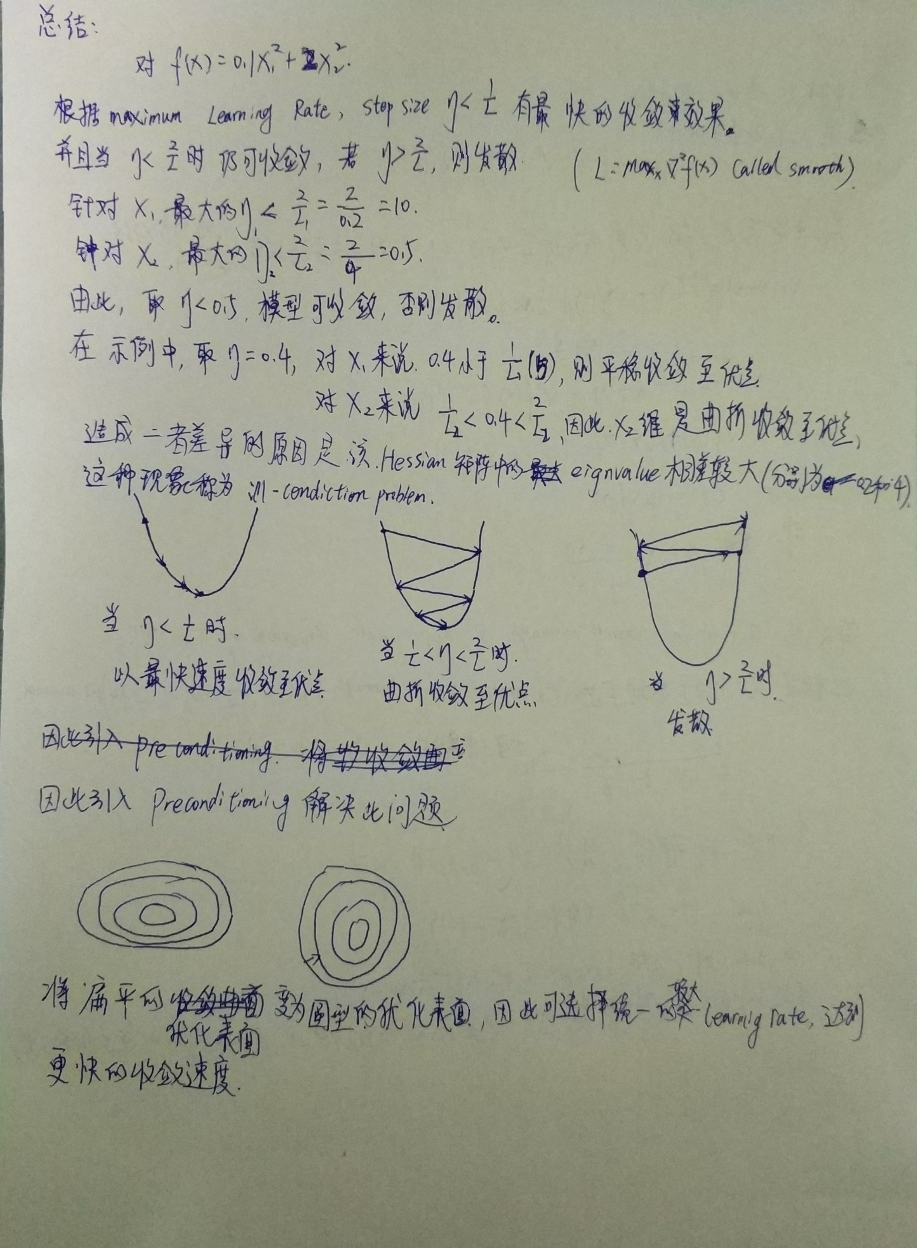 总结:
对 f(x)=0.1x₁²+2x₂².
根据 maximum Learning Rate, step size η<1/L 有最快的收敛效果。
并且当 η<2/L时 仍可收敛, 若 η>2/L, 则发散 (L=maxₓ∇²f(x) called smooth)
针对 X₁, 最大的η₁<2/L₁=2/0.2=10.
针对 X₂, 最大的η₂<2/L₂=2/4=0.5.
由此, 取 η<0.5, 模型可收敛, 否则发散。
在示例中, 取 η=0.4, 对 X₁来说. 0.4小于 1/L₁(5), 则平稳收敛至优点
对 X₂来说 1/L₂<0.4<2/L₂, 因此 X₂维是曲折收敛至优点,
造成二者差异的原因是该 Hessian 矩阵中的 eignvalue 相差较大(分别为 0.2和4)
这种现象称为 ill-condiction problem.
当 η<1/L 时.
以最快速度收敛至优点
当 1/L<η<2/L时.
曲折收敛至优点
当 η>2/L时.
发散
因此引入 preconditioning. 将
因此引入 Preconditioning 解决此问题
将扁平的优化表面变为圆型的优化表面, 因此可选择统一的 learnig rate, 达到
更快的收敛速度.